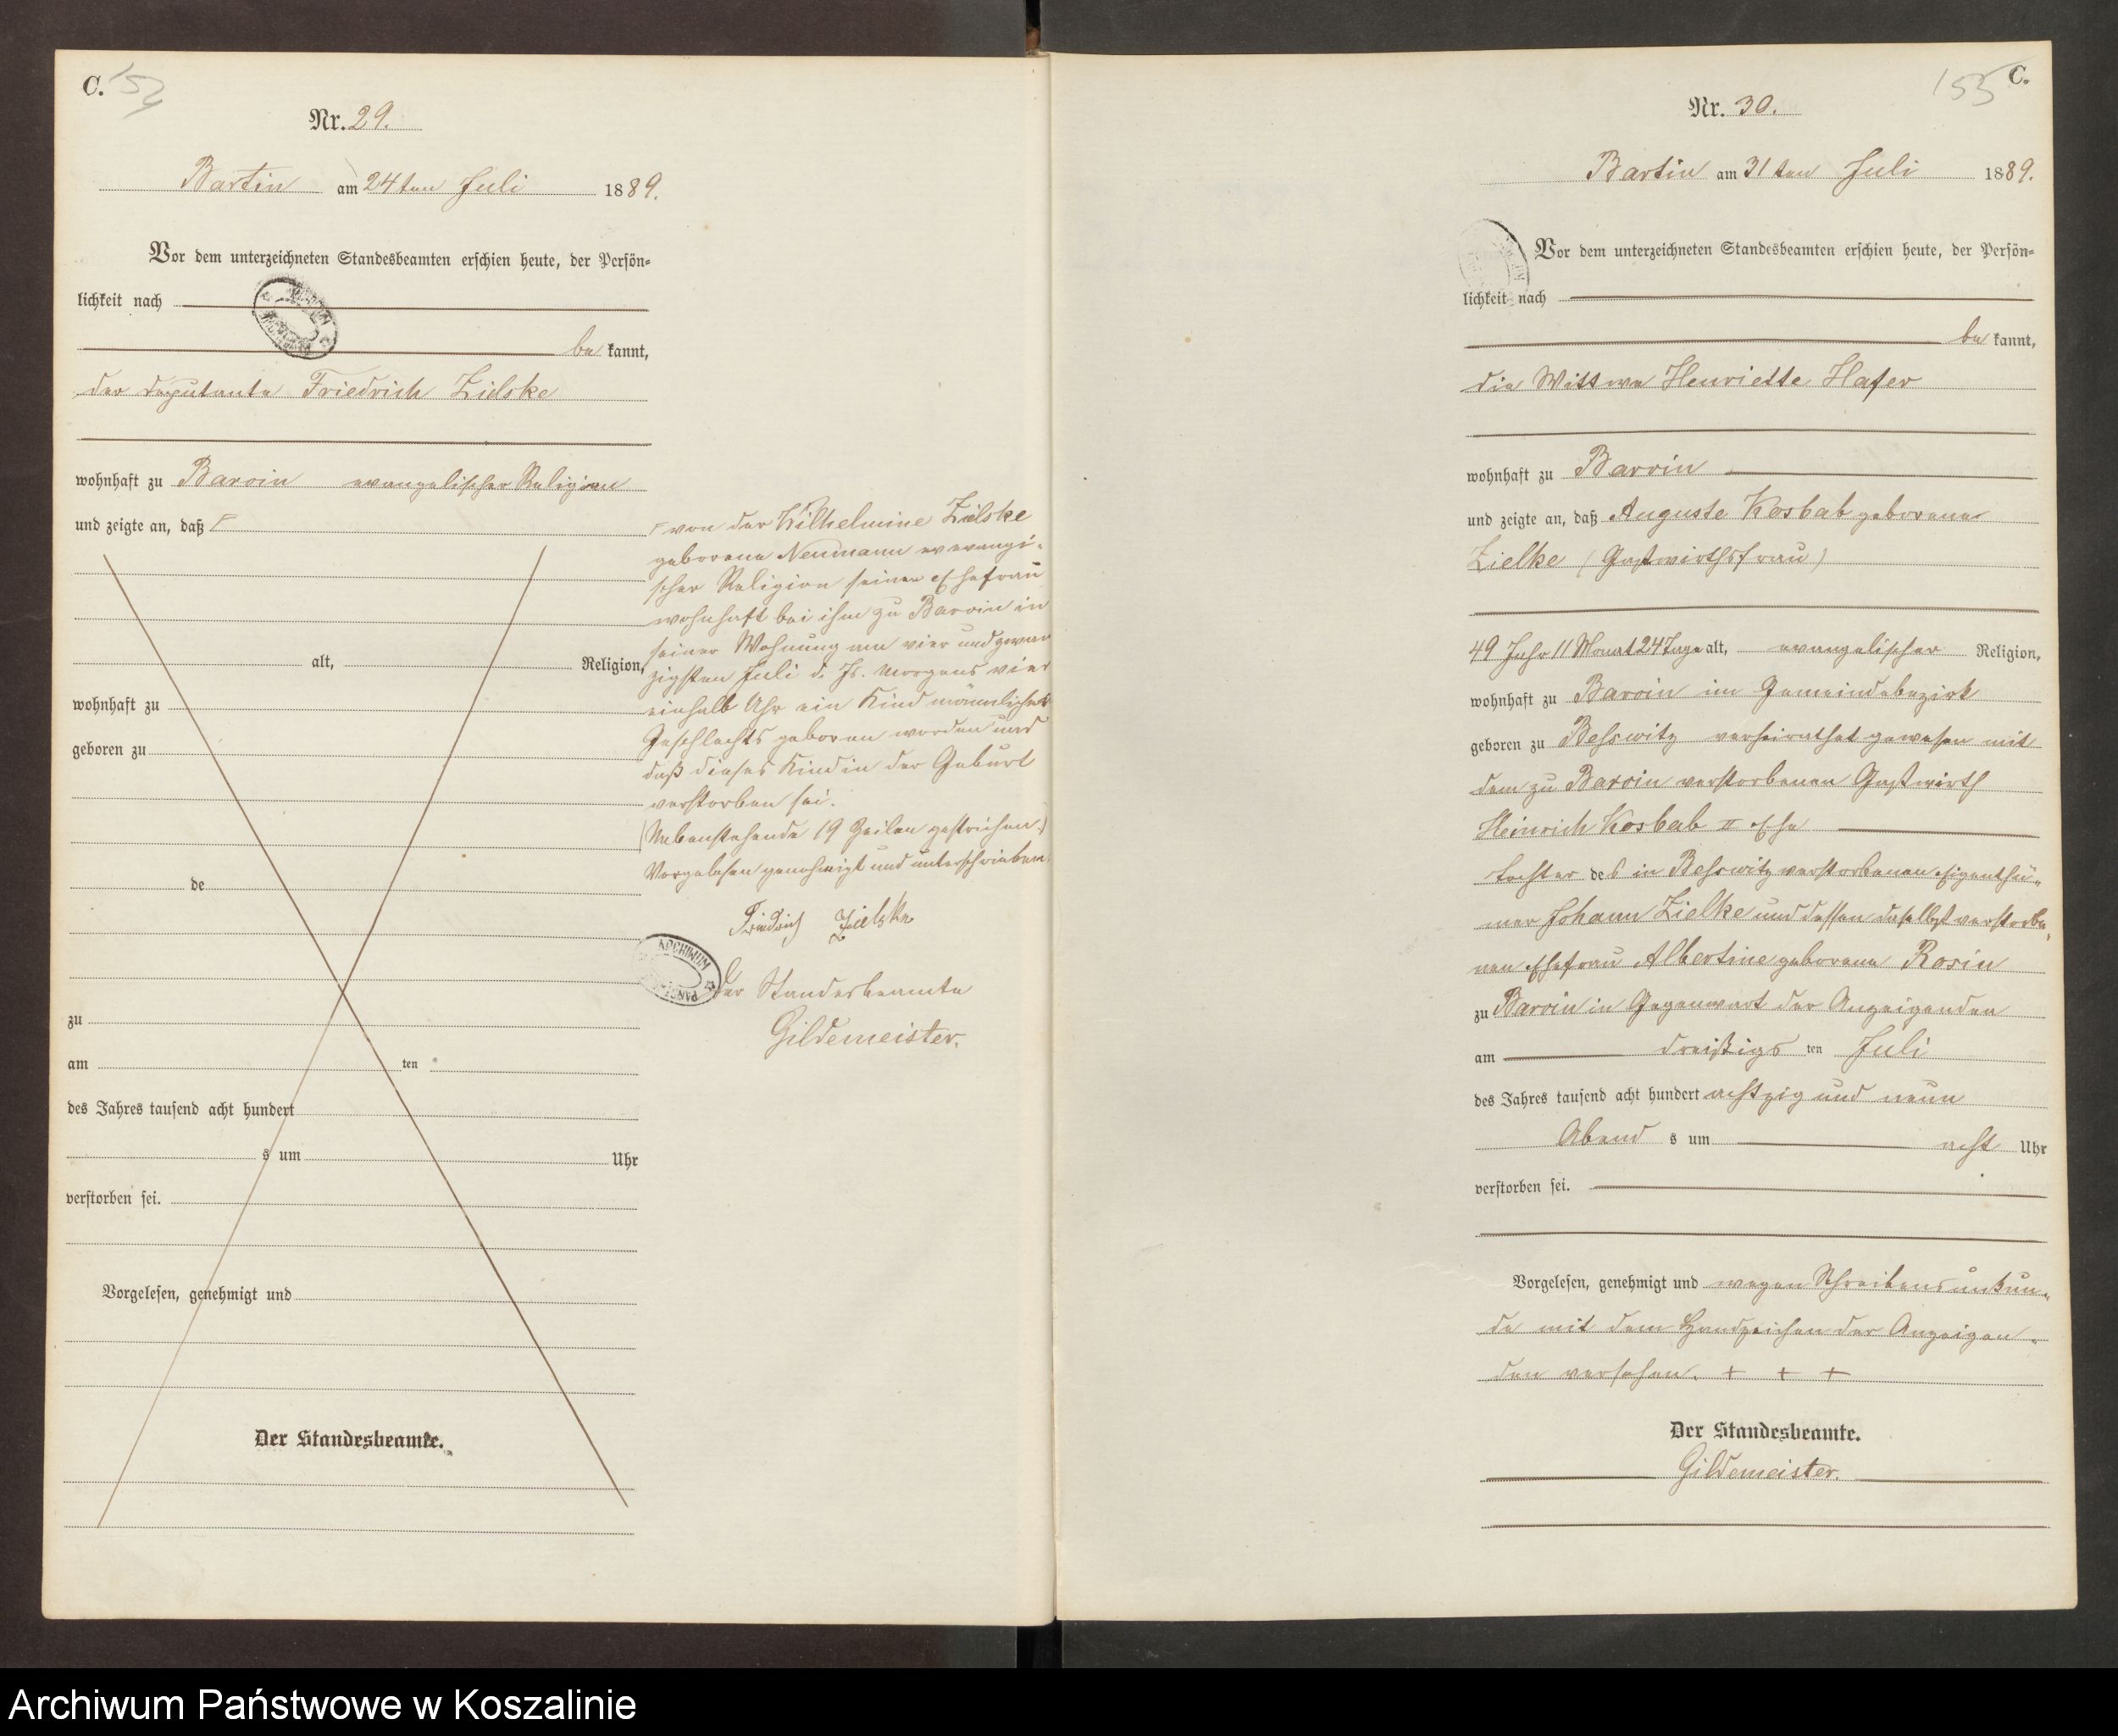 C. 154
Nr. 29.
Bartin am 24ten Juli 1889.
Vor dem unterzeichneten Standesbeamten erschien heute, der Persön=
lichkeit nach
be kannt,
der Deputante Friedrich Zielske
wohnhaft zu Barvin evangelischer Religion
und zeigte an, daß Γ
alt, Religion,
wohnhaft zu
geboren zu
de
zu
am ten
des Jahres tausend acht hundert
s um Uhr
verstorben sei.
Vorgelesen, genehmigt und
Der Standesbeamte.
Γ von der Wilhelmine Zielske
geborene Neumann
scher Religion seiner Ehefrau
wohnhaft bei ihm zu Barvin in
seiner Wohnung am vier und zwan
zigsten Juli d. Js. Morgens vier
einhalb Uhr ein Kind männliches
Geschlechts geboren worden und
daß dieses Kind in der Geburt
verstorben sei.
(Nebenstehende 19 Zeilen gestrichen.)
Vorgelesen genehmigt und unterschrieben.
Friedrich Zielske
ARCHIWUM
Der Standesbeamte
Gildemeister.
155 C.
Nr. 30.
Bartin am 31ten Juli 1889.
Vor dem unterzeichneten Standesbeamten erschien heute, der Persön=
lichkeit nach
be kannt,
die Wittwe Henriette Hafer
wohnhaft zu Barvin
und zeigte an, daß Auguste Kosbab geborene
Zielke (Gastwirthsfrau)
49 Jahr 11 Monat 24 Tage alt, evangelischer Religion,
wohnhaft zu Barvin im Gemeindebezirk
geboren zu Beßwitz verheirathet gewesen mit
dem zu Barvin verstorbenen Gastwirth
Heinrich Kosbab II Ehe
Tochter des in Beßwitz verstorbenen Eigenthü=
mer Johann Zielke und dessen daselbst verstorbe=
nen Ehefrau Albertine geborene Rosin
zu Barvin in Gegenwart der Anzeigenden
am dreißigs ten Juli
des Jahres tausend acht hundert achtzig und neun
Abend s um acht Uhr
verstorben sei.
Vorgelesen, genehmigt und wegen Schreibensunkun=
de mit dem Handzeichen der Anzeigen=
den versehen. + + +
Der Standesbeamte.
Gildemeister.
Archiwum Państwowe w Koszalinie